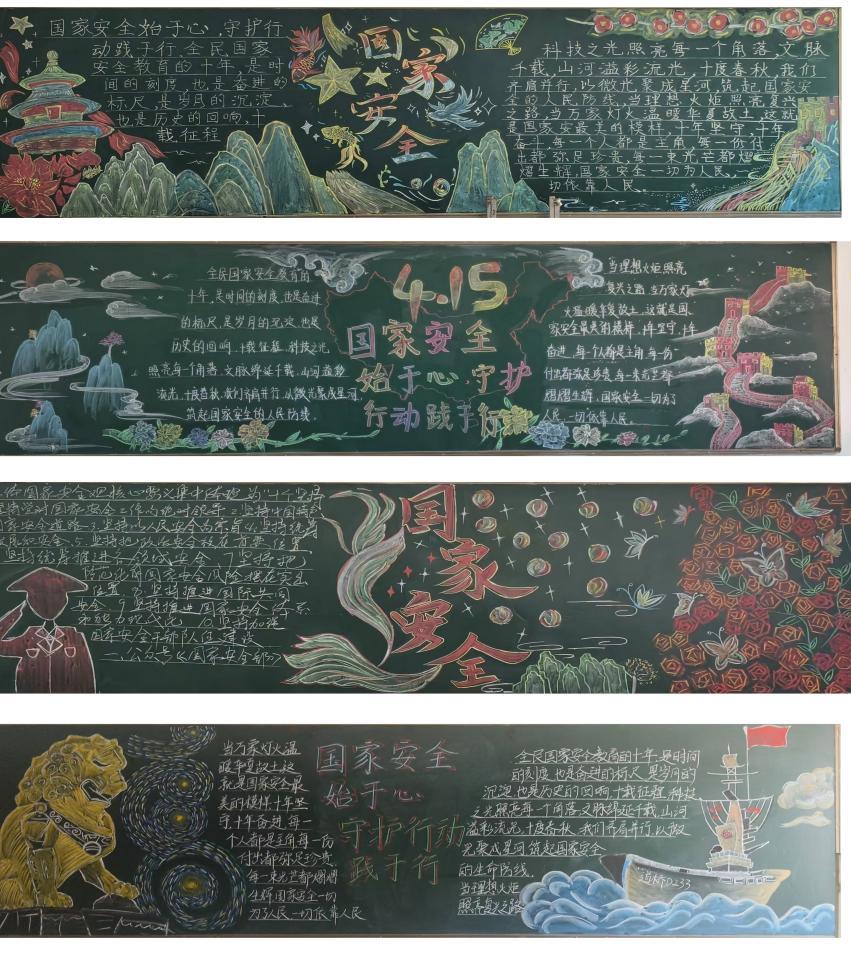 国家安全始于心,守护行
动践于行、全民国家
安全教育的十年,是时
间的刻度,也是奋进的
标尺,是岁月的沉淀、
也是历史的回响,十
载征程
国家
安全
科技之光,照亮每一个角落,文脉
千载,山河溢彩流光,十度春秋,我们
齐肩并行,以微光聚成星河,筑起国家安
全的人民防线,当理想火炬照亮复兴
之路,当万家灯火温暖华夏故土,这就
是国家安最美的模样,十年坚守,十年
奋斗,每一个人都是主角,每一份付
出都弥足珍贵,每一束光芒都熠
熠生辉,国家安全一切为人民,一
切依靠人民、
全民国家安全教育的
十年,是时间的刻度,也是奋进
的标尺,是岁月的沉淀,也是
历史的回响,十载征程,科技之光
照亮每个角落,文脉绵延千载,山河溢彩
流光,十度春秋,我们齐肩并行,以微光聚成星河,
筑起国家安全的人民防线.
4.15
国家安全
始于心,守护
行动践于行
当理想火炬照亮
复兴之路,当万家灯
火温暖华夏故土,这就是国
家安全最美的模样,十年坚守,十年
奋进,每一个人都是主角,每一份
付出都弥足珍贵,每一束光芒都
熠熠生辉,国家安全一切为了
人民,一切依靠人民。
国家安全观核心要义集中体现为"十个坚持
国家安全道路 3.坚持以人民安全为宗旨 4.坚持统筹
5.坚持把政治安全放在首要位置
坚持统筹推进各领域安全、7.坚持把
防范化解国家安全风险摆在突出
位置 8.坚持推进国际共同
安全、9.坚持推进国家安全体系
和能力现代化 10.坚持加强
国家安全干部队伍建设
——公众号《国家安全部》
国家
安全
当万家灯火温
暖华夏故土,这
就是国家安全最
美的模样,十年坚
守,十年奋进,每一
个人都是主角,每一份
付出都弥足珍贵,
每一束光芒都熠熠
生辉,国家安全一切
为了人民,一切依靠人民
国家安全
始于心
守护行动
践于行
全民国家安全教育的十年,是时间
的刻度,也是奋进的标尺,是岁月的
沉淀,也是历史的回响,十载征程,科技
之光照亮每一个角落,文脉绵延千载,山河
溢彩流光,十度春秋,我们齐肩并行,以微
光聚成星河,筑起国家安全
的生命防线.
当理想火炬
照亮复兴之路
道桥D233